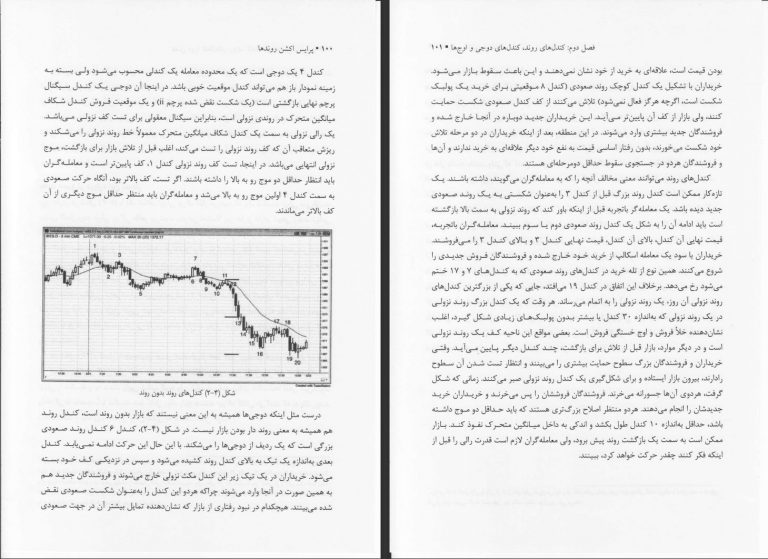 ۱۰۰ • پرایس اکشن روندها
کندل ۴ یک دوجی است که یک محدوده معامله یک کندلی محسوب می‌شود ولی بسته به
زمینه نمودار باز هم می‌تواند کندل موقعیت خوبی باشد. در اینجا آن دوجی یک کندل سیگنال
پرچم نهایی بازگشتی است (یک شکست نقض شده پرچم ii) و یک موقعیت فروش کندل شکاف
میانگین متحرک در روندی نزولی است، بنابراین سیگنال معقولی برای تست کف نزولی می‌باشد.
یک رالی نزولی به سمت یک کندل شکاف میانگین متحرک معمولاً خط روند نزولی را می‌شکند و
ریزش متعاقب آن که کف روند نزولی را تست می‌کند، اغلب قبل از تلاش بازار برای بازگشت، موج
نزولی انتهایی می‌باشد. در اینجا، تست کف روند نزولی کندل ۱، کف پایین‌تر است و معامله‌گران
باید انتظار حداقل دو موج رو به بالا را داشته باشند. اگر تست، کف بالاتر بود، آنگاه حرکت صعودی
به سمت کندل ۴ اولین موج رو به بالا می‌شد و معامله‌گران باید منتظر حداقل موج دیگری از آن
کف بالاتر می‌ماندند.
شکل (۴-۲) کندل‌های روند بدون روند
درست مثل اینکه دوجی‌ها همیشه به این معنی نیستند که بازار بدون روند است، کندل روند
هم همیشه به معنی روند دار بودن بازار نیست. در شکل (۴-۲)، کندل ۶ کندل روند صعودی
بزرگی است که یک ردیف از دوجی‌ها را می‌شکند. با این حال این حرکت ادامه نمی‌یابد. کندل
بعدی به‌اندازه یک تیک به بالای کندل روند کشیده می‌شود و سپس در نزدیکی کف خود بسته
می‌شود. خریداران در یک تیک زیر این کندل مکث نزولی خارج می‌شوند و فروشندگان جدید هم
به همین صورت در آنجا وارد می‌شوند چراکه هردو این کندل را به‌عنوان شکست صعودی نقض
شده می‌بینند. هیچکدام در نبود رفتاری از بازار که نشان‌دهنده تمایل بیشتر آن در جهت صعودی
فصل دوم: کندل‌های روند، کندل‌های دوجی و اوج‌ها • ۱۰۱
بودن قیمت است، علاقه‌ای به خرید از خود نشان نمی‌دهند و این باعث سقوط بازار می‌شود.
خریداران با تشکیل یک کندل کوچک روند صعودی (کندل ۸ موقعیتی برای خرید یک پولبک
شکست است، اگرچه هرگز فعال نمی‌شود) تلاش می‌کنند از کف کندل صعودی شکست حمایت
کنند، ولی بازار از کف آن پایین‌تر می‌آید. این خریداران جدید دوباره در آنجا خارج شده و
فروشندگان جدید بیشتری وارد می‌شوند. در این منطقه، بعد از اینکه خریداران در دو مرحله تلاش
خود شکست می‌خورند، بدون رفتار اساسی قیمت به نفع خود دیگر علاقه‌ای به خرید ندارند و آن‌ها
و فروشندگان هردو در جستجوی سقوط حداقل دومرحله‌ای هستند.
کندل‌های روند می‌توانند معنی مخالف آنچه را که به معامله‌گران می‌گویند، داشته باشند. یک
تازه‌کار ممکن است کندل روند بزرگ قبل از کندل ۳ را به‌عنوان شکستی به یک روند صعودی
جدید دیده باشد. یک معامله‌گر باتجربه قبل از اینکه باور کند که روند نزولی به سمت بالا بازگشته
است باید ادامه آن را به شکل یک کندل روند صعودی دوم یا سوم ببیند. معامله‌گران باتجربه،
قیمت نهایی آن کندل، بالای آن کندل، قیمت نهایی کندل ۳ و بالای کندل ۳ را می‌فروشند.
خریداران با سود یک معامله اسکالپ از خرید خود خارج شده و فروشندگان فروش جدیدی را
شروع می‌کنند. همین نوع از تله خرید در کندل‌های روند صعودی که به کندل‌های ۷ و ۱۷ ختم
می‌شود رخ می‌دهد. برخلاف این اتفاق در کندل ۱۹ می‌افتد، جایی که یکی از بزرگترین کندل‌های
روند نزولی آن روز، یک روند نزولی را به اتمام می‌رساند. هر وقت که یک کندل بزرگ روند نزولی
در یک روند نزولی که به‌اندازه ۳۰ کندل یا بیشتر بدون پولبک‌های زیادی شکل گیرد، اغلب
نشان‌دهنده خلأ فروش و اوج خستگی فروش است. بعضی مواقع این ناحیه کف یک روند نزولی
است و در دیگر موارد، بازار قبل از تلاش برای بازگشت، چند کندل دیگر پایین می‌آید. وقتی
خریداران و فروشندگان بزرگ سطوح حمایت بیشتری را می‌بینند و انتظار تست شدن آن سطوح
رادارند، بیرون بازار ایستاده و برای شکل‌گیری یک کندل روند نزولی صبر می‌کنند. زمانی که شکل
گرفت، هردوی آن‌ها جسورانه می‌خرند. فروشندگان فروششان را پس می‌خرند و خریداران خرید
جدیدشان را انجام می‌دهند. هردو منتظر اصلاح بزرگ‌تری هستند که باید حداقل دو موج داشته
باشد، حداقل به‌اندازه ۱۰ کندل طول بکشد و اندکی به داخل میانگین متحرک نفوذ کند. بازار
ممکن است به سمت یک بازگشت روند پیش برود، ولی معامله‌گران لازم است قدرت رالی را قبل از
اینکه فکر کنند چقدر حرکت خواهد کرد، ببینند.